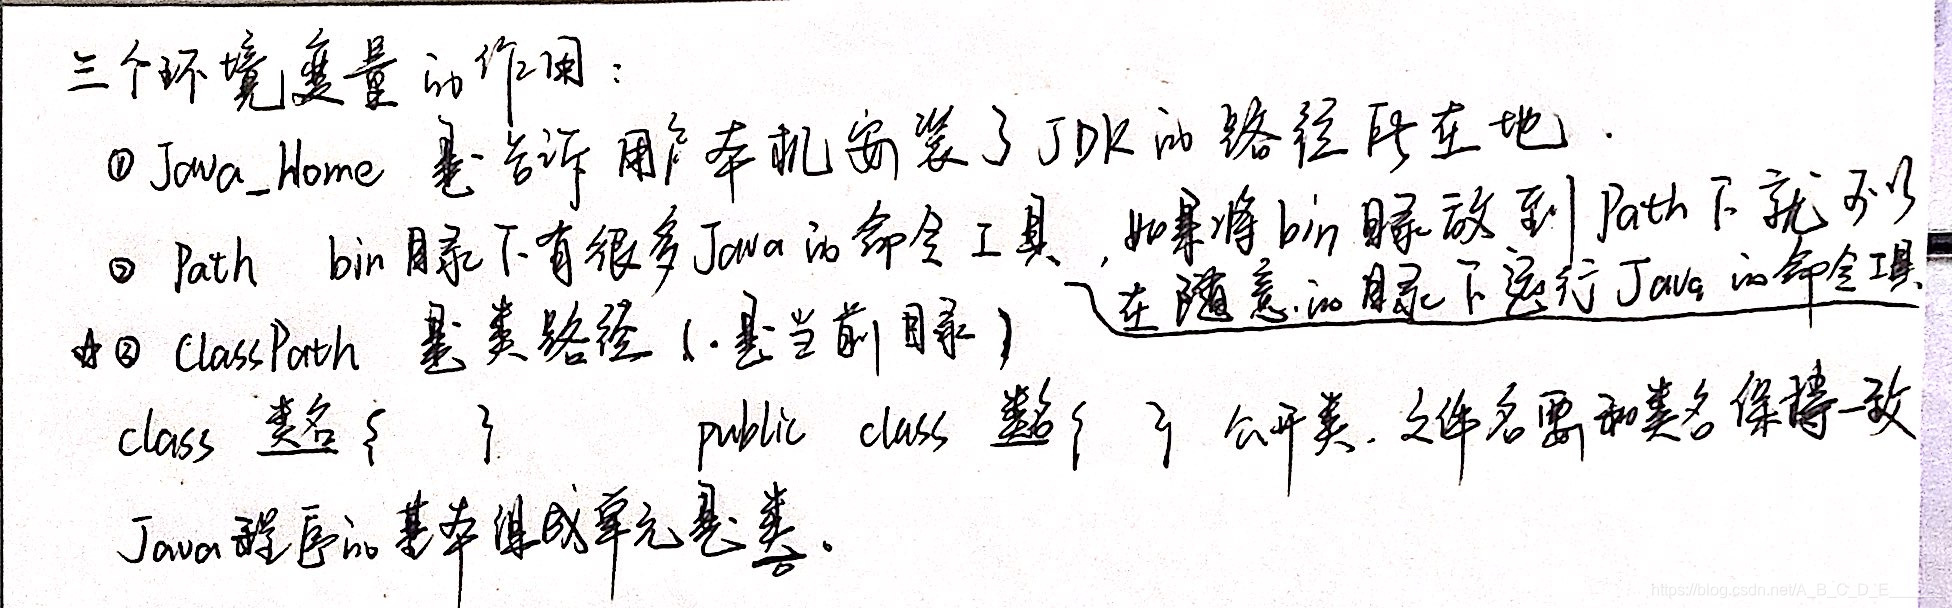 三个环境变量的作用：
① Java_Home 是告诉用户本机安装了JDK的路径所在地.
② Path bin目录下有很多Java的命令工具，如果将bin目录放到Path下就可以
在随意的目录下运行Java的命令工具
☆③ ClassPath 是类路径(.是当前目录)
class 类名{ } public class 类名{ } 公开类.文件名要和类名保持一致
Java程序的基本组成单元是类。
https://blog.csdn.net/A_B_C_D_E